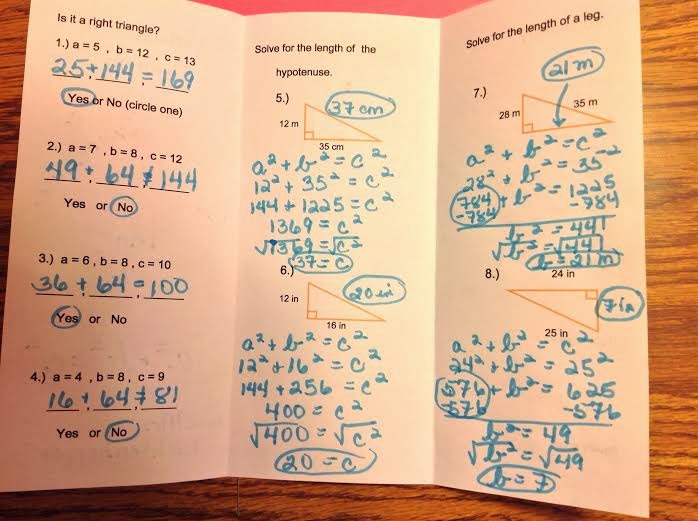 Is it a right triangle?
1.) a = 5 , b = 12 , c = 13
25 + 144 = 169
Yes or No (circle one)
2.) a = 7 , b = 8 , c = 12
49 + 64 ≠ 144
Yes or No
3.) a = 6 , b = 8 , c = 10
36 + 64 = 100
Yes or No
4.) a = 4 , b = 8 , c = 9
16 + 64 ≠ 81
Yes or No
Solve for the length of the
hypotenuse.
5.)
37 cm
12 m
35 cm
a² + b² = c²
12² + 35² = c²
144 + 1225 = c²
1369 = c²
√1369 = √c²
37 = c
6.)
20 in
12 in
16 in
a² + b² = c²
12² + 16² = c²
144 + 256 = c²
400 = c²
√400 = √c²
20 = c
Solve for the length of a leg.
21 m
7.)
28 m
35 m
a² + b² = c²
28² + b² = 35²
784 + b² = 1225
-784 -784
b² = 441
√b² = √441
b = 21 m
8.)
24 in
7 in
25 in
a² + b² = c²
24² + b² = 25²
576 + b² = 625
-576 -576
b² = 49
√b² = √49
b = 7